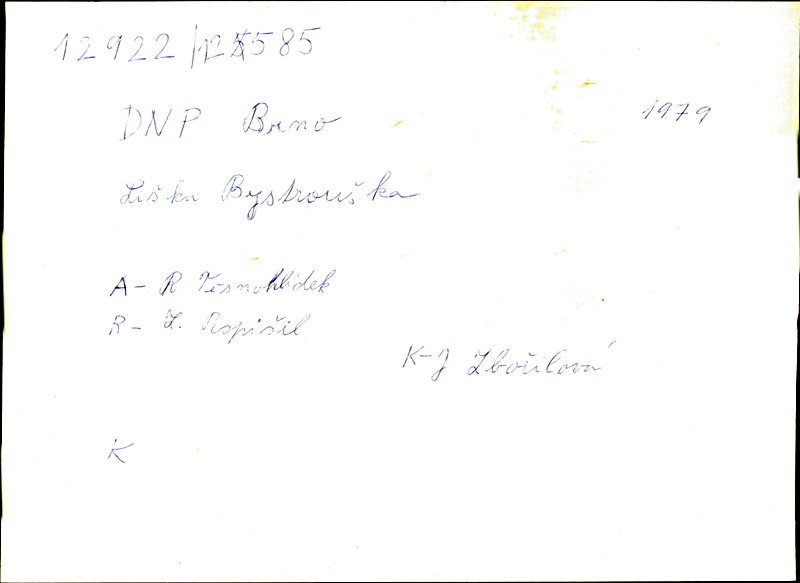 12922/125585
DNP Brno 1979
Liška Bystrouška
A- R. Těsnohlídek
R- Z. Pospíšil
K-J Zbořilová
K